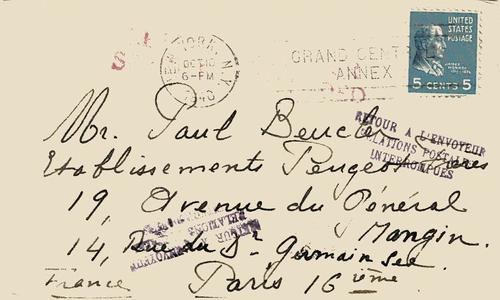 YORK, N.Y.
OCT 10
6-PM
1940
GRAND CENT
ANNEX
UNITED
STATES
POSTAGE
5 CENTS 5
Mr. Paul Beucler
RETOUR A L'ENVOYEUR
RELATIONS POSTALES
INTERROMPUES
Etablissements Peugeot Frères
19, Avenue du Général
Mangin.
14, Rue du Dr Germain See.
RETOUR
RELATIONS
France
Paris 16 ième